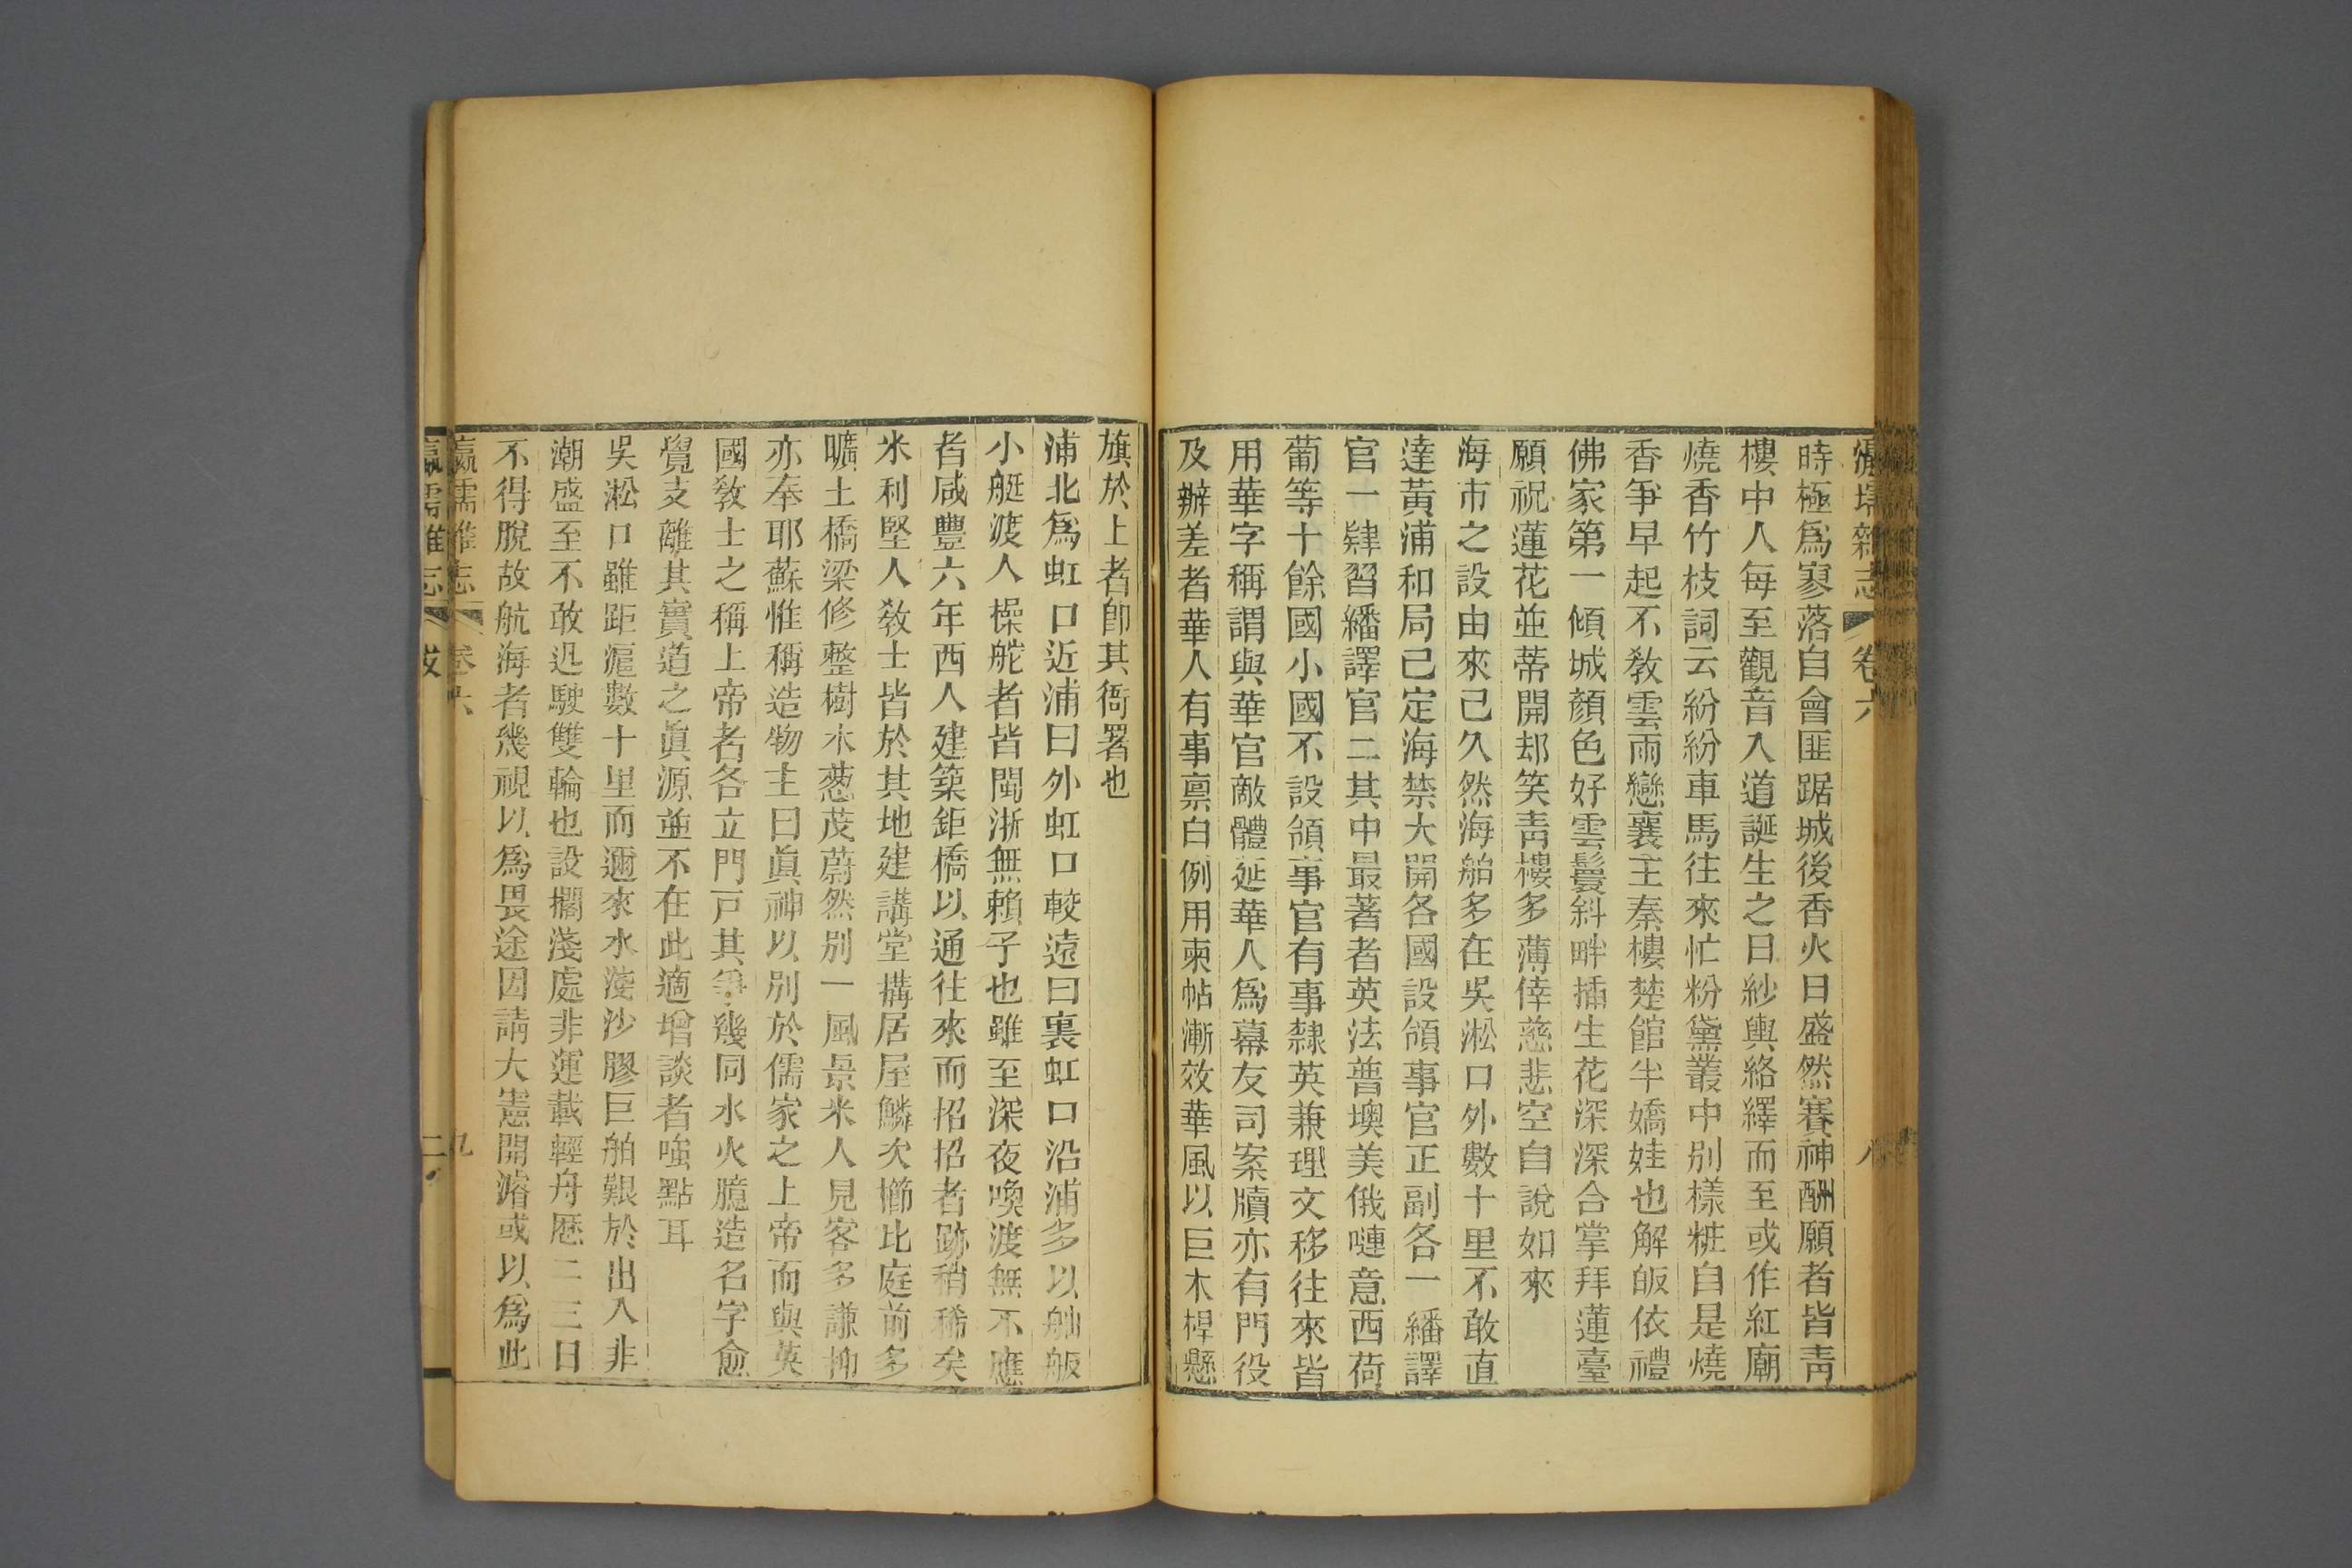 瀛壖雜志 卷六 八
時極爲寥落自會匪踞城後香火日盛然賽神酬願者皆靑
樓中人每至觀音入道誕生之日紗輿絡繹而至或作紅廟
燒香竹枝詞云紛紛車馬往來忙粉黛叢中別樣粧自是燒
香爭早起不敎雲雨戀襄主秦樓楚館半嬌娃也解皈依禮
佛家第一傾城顔色好雲鬟斜畔插生花深深合掌拜蓮臺
願祝蓮花並蒂開却笑靑樓多薄倖慈悲空自說如來
海市之設由來已久然海舶多在吳淞口外數十里不敢直
達黃浦和局已定海禁大開各國設領事官正副各一繙譯
官一肄習繙譯官二其中最著者英法普墺美俄嗹意西荷
葡等十餘國小國不設領事官有事隸英兼理文移往來皆
用華字稱謂與華官敵體延華人爲幕友司案牘亦有門役
及辦差者華人有事禀白例用柬帖漸效華風以巨木桿懸
旗於上者卽其衙署也
浦北爲虹口近浦曰外虹口較遠曰裏虹口沿浦多以舢舨
小艇渡人操舵者皆閩浙無賴子也雖至深夜喚渡無不應
者咸豐六年西人建築鉅橋以通往來而招招者跡稍稀矣
米利堅人敎士皆於其地建講堂搆居屋鱗次櫛比庭前多
曠土橋梁修整樹木葱茂蔚然別一風景米人見客多謙抑
亦奉耶蘇惟稱造物主曰眞神以別於儒家之上帝而與英
國敎士之稱上帝者各立門戸其爭幾同水火臆造名字愈
覺支離其實道之眞源並不在此適增談者嗤點耳
吳淞口雖距滬數十里而邇來水淺沙膠巨舶艱於出入非
潮盛至不敢迅駛雙輪也設擱淺處非運載輕舟歷二三日
不得脫故航海者幾視以爲畏途因請大憲開濬或以爲此
瀛壖雜志 卷六 九
瀛壖雜志 跋 二